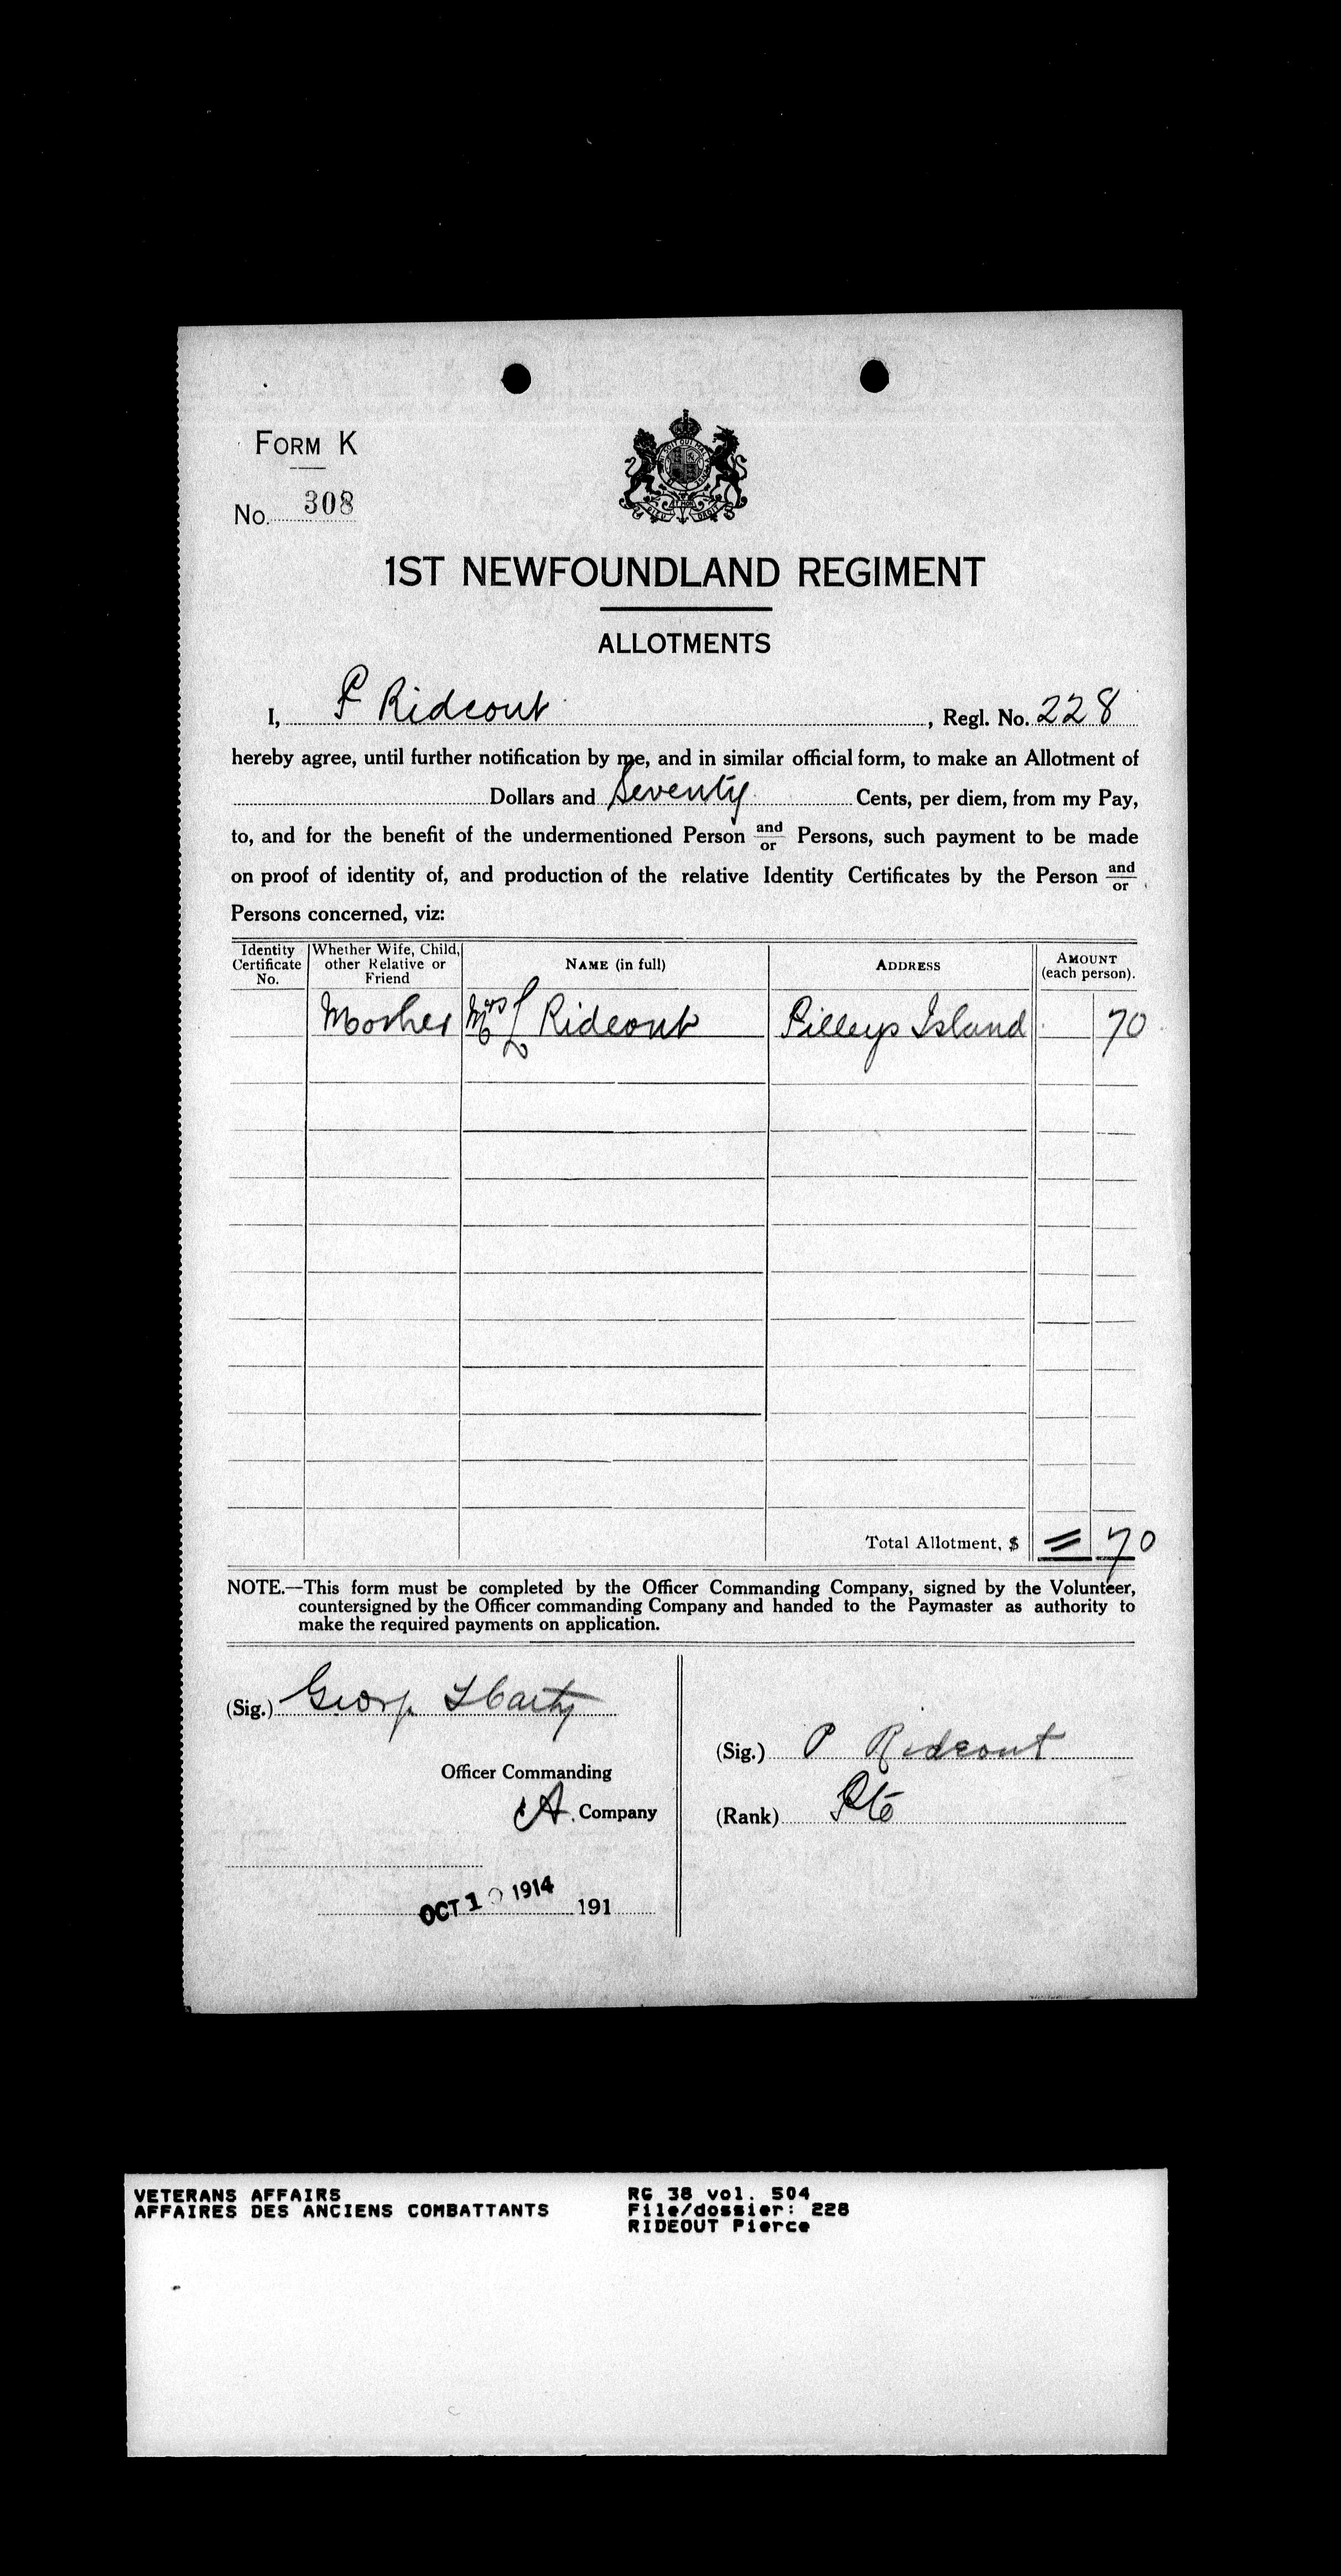 FORM K
No. 308
1ST NEWFOUNDLAND REGIMENT
ALLOTMENTS
I, P Rideout, Regl. No. 228
hereby agree, until further notification by me, and in similar official form, to make an Allotment of
Dollars and Seventy Cents, per diem, from my Pay,
to, and for the benefit of the undermentioned Person and/or Persons, such payment to be made
on proof of identity of, and production of the relative Identity Certificates by the Person and/or
Persons concerned, viz:
Identity Certificate No. Whether Wife, Child, other Relative or Friend NAME (in full) ADDRESS AMOUNT (each person).
Mother Mrs Rideout Pilleys Island 70
Total Allotment, $ = 70
NOTE.—This form must be completed by the Officer Commanding Company, signed by the Volunteer,
countersigned by the Officer commanding Company and handed to the Paymaster as authority to
make the required payments on application.
(Sig.) George T Carty
(Sig.) P Rideout
Officer Commanding
A. Company
(Rank) Pte
OCT 1 1914 191
VETERANS AFFAIRS RG 38 vol. 504
AFFAIRES DES ANCIENS COMBATTANTS File/dossier: 228
RIDEOUT Pierce